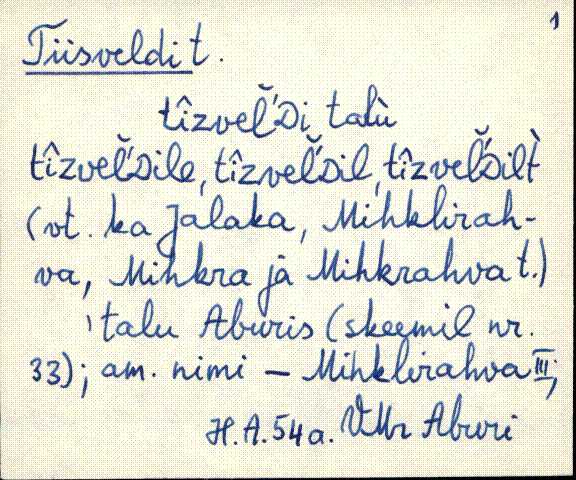 1
Tiisveldi t.
tîzvel̆'Di talù
tîzvel̆'Dile, tîzvel̆'Dil, tîzvel̆'Dilt̀
(vt. ka Jalaka, Mihklirah-
va, Mihkra ja Mihkrahva t.)
'talu Aburis (skeemil nr.
33); am. nimi – Mihklirahva III;
H.A. 54 a. VMr Aburi